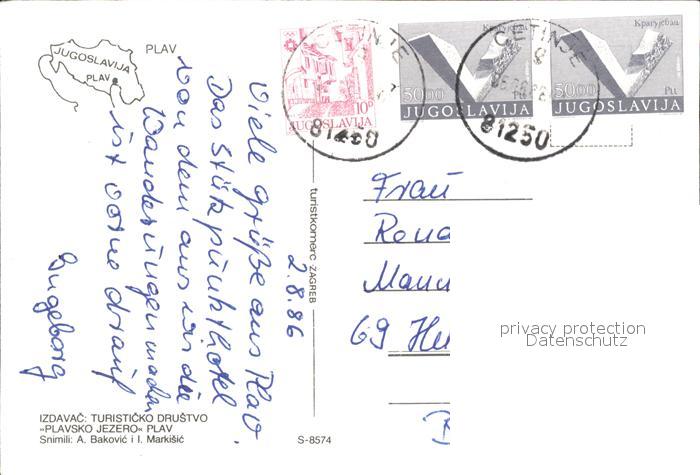 JUGOSLAVIJA
PLAV
PLAV
10⁰
JUGOSLAVIJA
Крагујевац
5000
JUGOSLAVIJA
Крагујевац
5000
JUGOSLAVIJA
CETINJE
81250
CETINJE
81250
2.8.86
Viele Grüße aus Plav.
Das Stützpunkthotel
von dem aus wir die
Wanderungen machen
ist vorne drauf
Ingeborg
turistkomerc - ZAGREB
Frau
Rena
69
privacy protection
Datenschutz
IZDAVAČ: TURISTIČKO DRUŠTVO
»PLAVSKO JEZERO« PLAV
Snimili: A. Baković i I. Markišić
S-8574